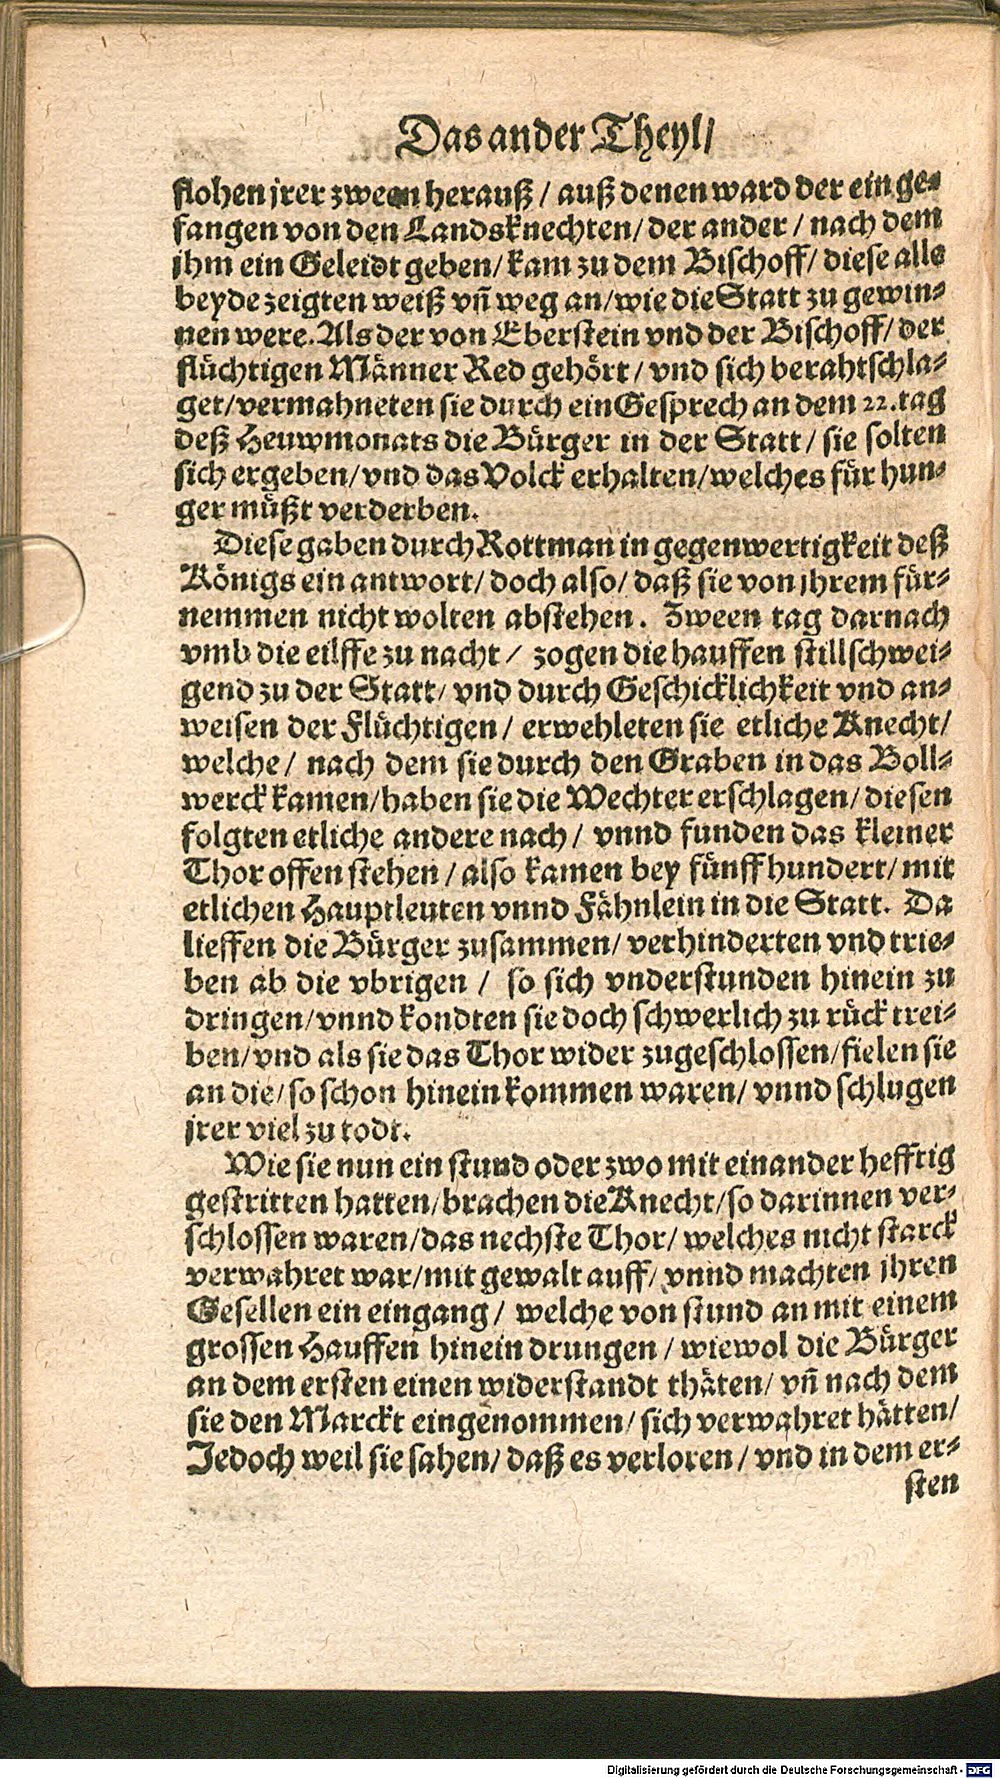 Das ander Theyl/
flohen jrer zween herauß / auß denen ward der ein ge-
fangen von den Landsknechten/ der ander / nach dem
jhm ein Geleidt geben/ kam zu dem Bischoff/ diese alle
beyde zeigten weiß vñ weg an/ wie die Statt zu gewin-
nen were. Als der von Eberstein vnd der Bischoff/ der
flüchtigen Männer Red gehört / vnd sich berahtschla-
get/ vermahneten sie durch ein Gesprech an dem 22. tag
deß Heuwmonats die Bürger in der Statt / sie solten
sich ergeben/ vnd das Volck erhalten/ welches für hun-
ger müßt verderben.
Diese gaben durch Rottman in gegenwertigkeit deß
Königs ein antwort/ doch also/ daß sie von jhrem für-
nemmen nicht wolten abstehen. Zween tag darnach
vmb die eilffe zu nacht / zogen die hauffen stillschwei-
gend zu der Statt/ vnd durch Geschicklichkeit vnd an-
weisen der Flüchtigen / erwehleten sie etliche Knecht/
welche / nach dem sie durch den Graben in das Boll-
werck kamen/ haben sie die Wechter erschlagen/ diesen
folgten etliche andere nach / vnnd funden das kleiner
Thor offen stehen / also kamen bey fünff hundert/ mit
etlichen Hauptleuten vnnd Fähnlein in die Statt. Da
lieffen die Bürger zusammen/ verhinderten vnd trie-
ben ab die vbrigen / so sich vnderstunden hinein zu
dringen/ vnnd kondten sie doch schwerlich zu rück trei-
ben/ vnd als sie das Thor wider zugeschlossen/ fielen sie
an die/ so schon hinein kommen waren/ vnnd schlugen
jrer viel zu todt.
Wie sie nun ein stund oder zwo mit einander hefftig
gestritten hatten/ brachen die Knecht/ so darinnen ver-
schlossen waren/ das nechste Thor/ welches nicht starck
verwahret war/ mit gewalt auff/ vnnd machten jhren
Gesellen ein eingang / welche von stund an mit einem
grossen Hauffen hinein drungen / wiewol die Bürger
an dem ersten einen widerstandt thäten/ vñ nach dem
sie den Marckt eingenommen/ sich verwahret hätten/
Jedoch weil sie sahen/ daß es verloren / vnd in dem er-
sten
Digitalisierung gefördert durch die Deutsche Forschungsgemeinschaft - DFG